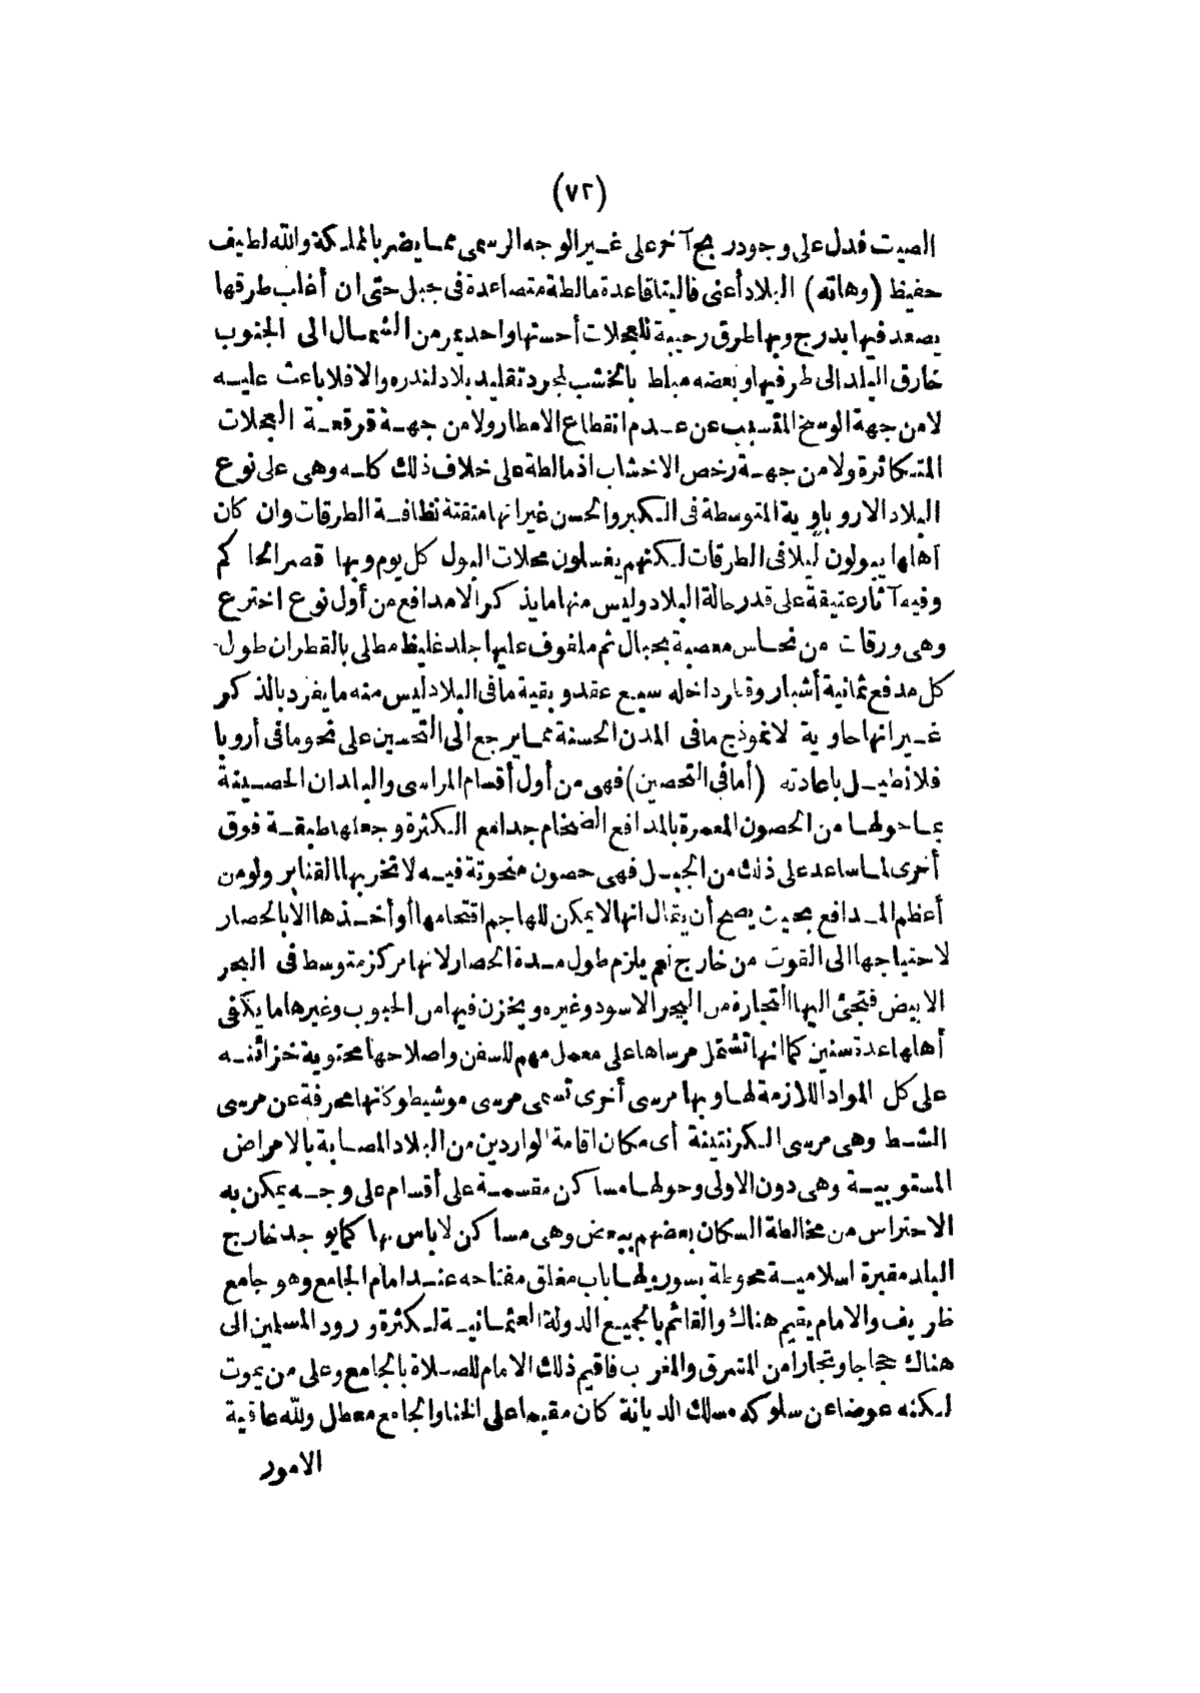 (٧٢)
الصيت فدل على وجود ربح آخر على غير الوجه الرسمى مما يضر بالمملكة والله لطيف
حفيظ (وهاته) البلاد أعنى فاليتا قاعدة مالطة متصاعدة فى جبل حتى ان أغلب طرقها
يصعد فيها بدرج وبها طرق رحيبة للعجلات أحسنها واحد يمر من الشمال الى الجنوب
خارق البلد الى طرفيها وبعضه مبلط بالخشب لمجرد تقليد بلاد لندره والا فلا باعث عليه
لا من جهة الوسخ المتسبب عن عدم انقطاع الامطار ولا من جهة قرقعة العجلات
المتكاثرة ولا من جهة رخص الاخشاب اذ مالطة على خلاف ذلك كله وهى على نوع
البلاد الاروباوية المتوسطة فى الكبر والحسن غير انها متقنة نظافة الطرقات وان كان
أهلها يبولون ليلا فى الطرقات لكنهم يغسلون محلات البول كل يوم وبها قصر الحاكم
وفيه آثار عتيقة على قدر حالة البلاد وليس منها ما يذكر الا مدافع من أول نوع اخترع
وهى ورقات من نحاس معصبة بحبال ثم ملفوف عليها جلد غليظ مطلى بالقطران طول
كل مدفع ثمانية أشبار وقار داخله سبع عقد وبقية ما فى البلاد ليس منه ما يفرد بالذكر
غير انها حاوية لانموذج ما فى المدن الحسنة مما يرجع الى التحسين على نحو ما فى أروبا
فلا نطيل باعادته (أما فى التحصين) فهى من أول أقسام المراسى والبلدان الحصينة
بما حولها من الحصون المعمرة بالمدافع الضخام جدا مع الكثرة وجعلها طبقة فوق
أخرى لما ساعد على ذلك من الجبل فهى حصون منحوتة فيه لا تخربها القنابر ولو من
أعظم المدافع بحيث يصح أن يقال انها لا يمكن للهاجم اقتحامها أو أخذها الا بالحصار
لاحتياجها الى القوت من خارج نعم يلزم طول مدة الحصار لانها مركز متوسط فى البحر
الابيض فتجئ اليها التجارة من البحر الاسود وغيره ويخزن فيها من الحبوب وغيرها ما يكفى
أهلها عدة سنين كما انها تشتمل مرساها على معمل مهم للسفن واصلاحها محتوية خزائنه
على كل المواد اللازمة لها وبها مرسى أخرى تسمى مرسى موشيط وكانها محرفة عن مرسى
الشط وهى مرسى الكرنتينة أى مكان اقامة الواردين من البلاد المصابة بالامراض
المستوبية وهى دون الاولى وحولها مساكن مقسمة على أقسام على وجه يمكن به
الاحتراس من مخالطة السكان بعضهم ببعض وهى مساكن لاباس بها كما يوجد خارج
البلد مقبرة اسلامية محوطة بسور ولها باب مغلق مفتاحه عند امام الجامع وهو جامع
ظريف والامام يقيم هناك والقائم بالجميع الدولة العثمانية لكثرة ورود المسلمين الى
هناك حجاجا وتجارا من المشرق والمغرب فاقيم ذلك الامام للصلاة بالجامع وعلى من يموت
لكنه عوضا عن سلوكه مسلك الديانة كان مقيما على الخنا والجامع معطل ولله عاقبة
الامور